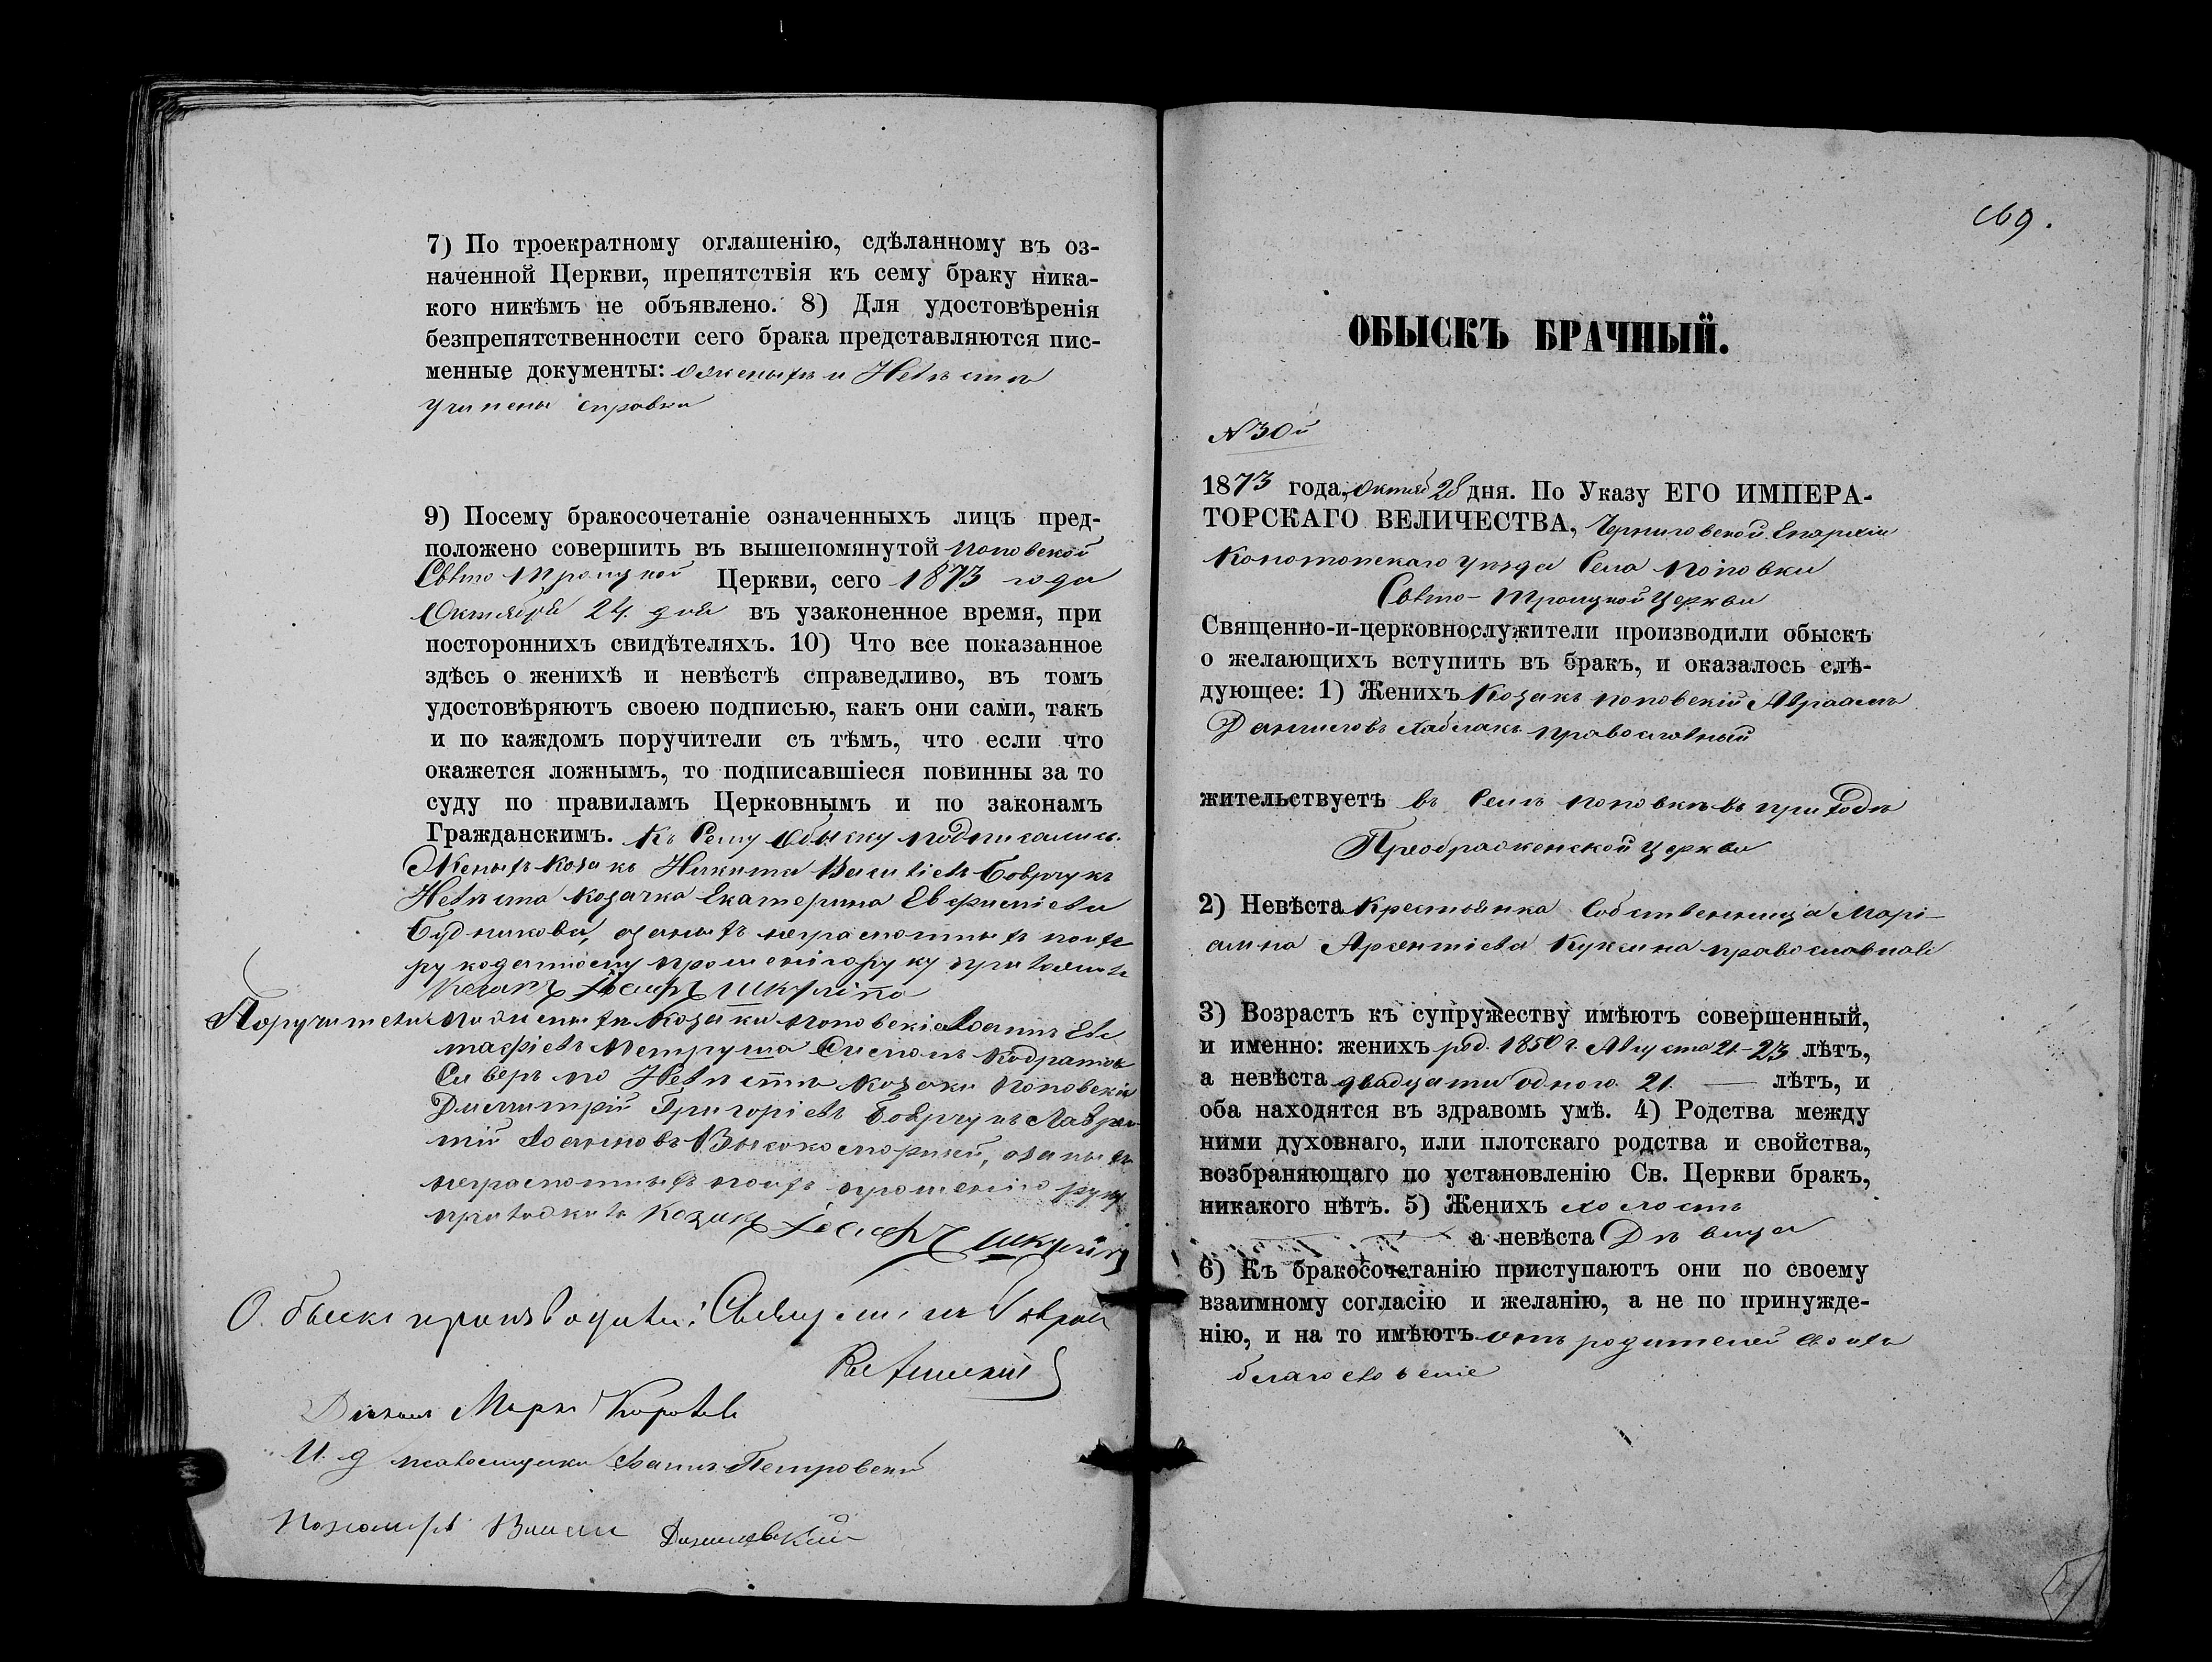 7) По троекратному оглашенію, сдѣланному въ оз-
наченной Церкви, препятствія къ сему браку ника-
кого никѣмъ не объявлено. 8) Для удостовѣренія
безпрепятственности сего брака представляются пис-
менные документы: о женихѣ и Невѣстѣ
учинены справки
9) Посему бракосочетаніе означенныхъ лицъ пред-
положено совершить въ вышепомянутой Поповской
Свято Троицкой Церкви, сего 1873 года
Октября 24. дня въ узаконенное время, при
постороннихъ свидѣтеляхъ. 10) Что все показанное
здѣсь о женихѣ и невѣстѣ справедливо, въ томъ
удостовѣряютъ своею подписью, какъ они сами, такъ
и по каждомъ поручители съ тѣмъ, что если что
окажется ложнымъ, то подписавшіеся повинны за то
суду по правиламъ Церковнымъ и по законамъ
Гражданскимъ. Къ Сему Обыску подписались.
Женихъ козакъ Никита Василіевъ Бовчукъ
Невѣста козачка Екатерина Евфиміева
Будникова, за нихъ неграмотныхъ по ихъ
рукоданному прошенію руку приложилъ
Козакъ Іосифъ Шкуліпа
Поручители по женихѣ козаки Поповскіе Іоаннъ Ев
стафіевъ Петруша Симеонъ Кодратовъ
Сиверъ по Невѣстѣ козаки Поповскіе
Димитрій Григоріевъ Бовчукъ Лаврен
тій Іоанновъ Високоморный, за нихъ
неграмотныхъ по ихъ прошенію руку
приложилъ Козакъ Іосифъ Шкуліпа
Обыскъ производили: Священникъ
Діаконъ Маркъ
И. д псаломщика Іоаннъ Петровскій
Пономарь Данилевскій
169.
ОБЫСКЪ БРАЧНЫЙ.
№ 30й
1873 года, Октяб 28 дня. По Указу ЕГО ИМПЕРА-
ТОРСКАГО ВЕЛИЧЕСТВА, Черниговской Епархіи
Конотопскаго уѣзда Села Поповки
Свято-Троицкой Церкви
Священно-и-церковнослужители производили обыскъ
о желающихъ вступить въ бракъ, и оказалось слѣ-
дующее: 1) Женихъ Козакъ Поповскій Авраамъ
Данииловъ Хаблакъ православный
жительствуетъ въ Селѣ Поповкѣ въ приходѣ
Преображенской церкви
2) Невѣста Крестьянка Собственница Марі-
амна Арсентіева Куксина православная
3) Возрастъ къ супружеству имѣютъ совершенный,
и именно: женихъ род. 1850 г. Августа 21 - 23 лѣтъ,
а невѣста двадцати одного 21. — лѣтъ, и
оба находятся въ здравомъ умѣ. 4) Родства между
ними духовнаго, или плотскаго родства и свойства,
возбраняющаго по установленію Св. Церкви бракъ,
никакого нѣтъ. 5) Женихъ холостъ
а невѣста Дѣвица
6) Къ бракосочетанію приступаютъ они по своему
взаимному согласію и желанію, а не по принужде-
нію, и на то имѣютъ отъ родителей своихъ
благословеніе